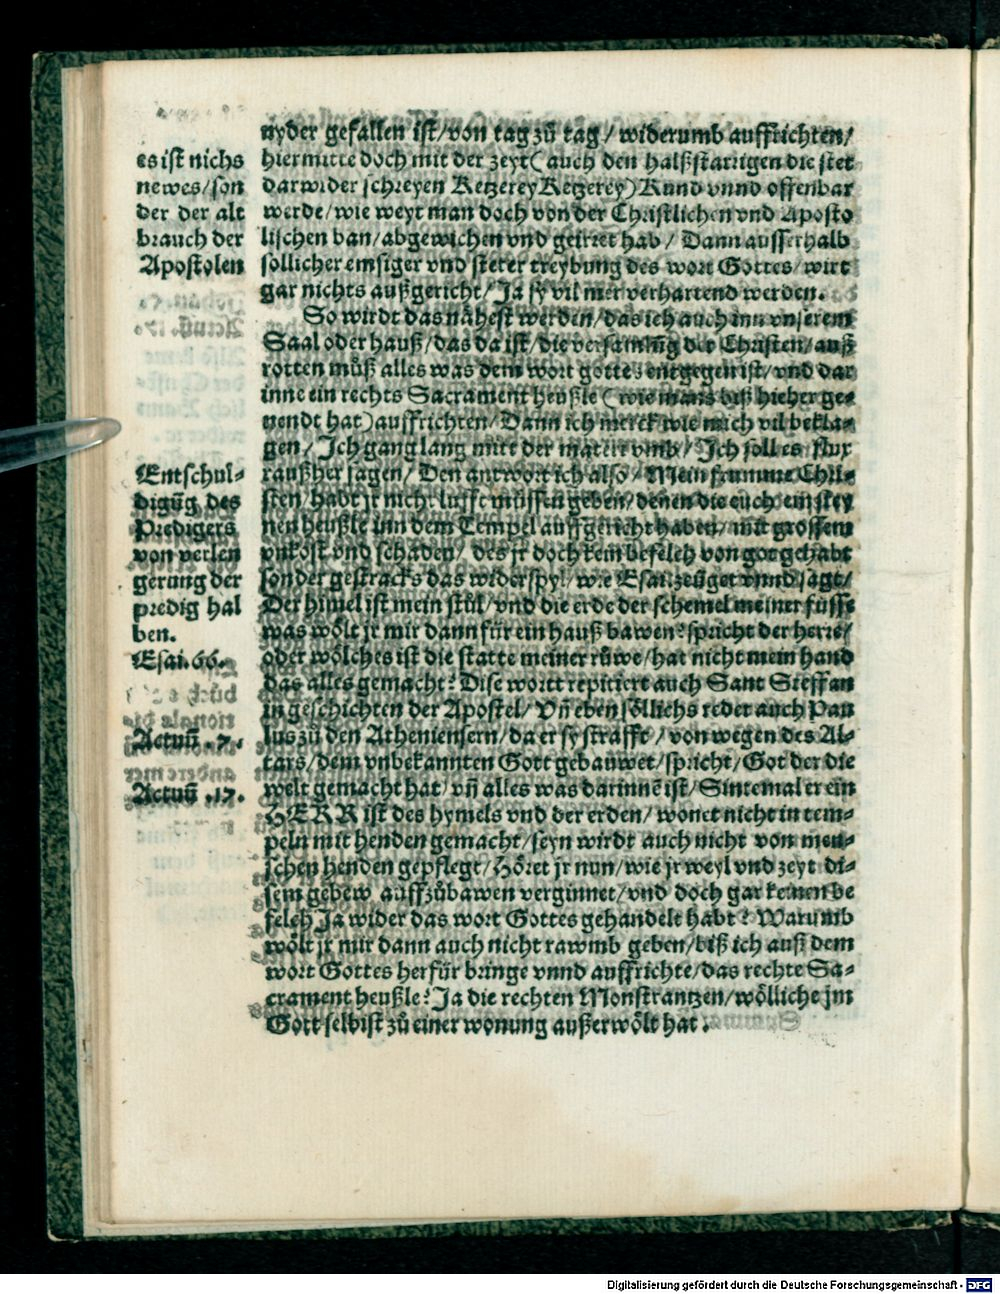 nyder gefallen ist/von tag zů tag/widerumb auffrichten/
hiermitte doch mit der zeyt(auch den halßstarrigen die stet
darwider schreyen Ketzerey Ketzerey)Kund vnnd offenbar
werde/wie weyt man doch von der Christlichen vnd Aposto
lischen ban/abgewichen vnd geirret hab/Dann ausserhalb
sollicher emsiger vnd steter treybung des wort Gottes/wirt
gar nichts außgericht/Ja sy vil mer verhartend werden.
es ist nichs
newes/son
der der alt
brauch der
Apostolen
So wirdt das nåhest werden/das ich auch inn vnserem
Saal oder hauß/das da ist/die versamlũg der Christen/auß
rotten můß alles was dem wort gottes entgegen ist/vnd dar
inne ein rechts Sacrament heußle(wie mans biß hieher ge-
nendt hat)auffrichten/Dann ich merck/wie mich vil bekla-
gen/Ich gang lang mitt der materi vmb/Ich soll es flux
raußher sagen/Den antwort ich also/Mein frumme Chri-
sten/habt jr nicht lufft müssen geben/denen die euch ein stey
nen heußle inn dem Tempel auffgericht haben/mit grossem
vnkost vnd schaden/des jr doch kein befelch von got gehabt
sonder gestracks das widerspyl/wie Esai.zeüget vnnd sagt/
Der himel ist mein stůl/vnd die erde der schemel meiner füsse
was wölt jr mir dann für ein hauß bawen?spricht der herre/
oder wölches ist die statte meiner růwe/hat nicht mein hand
das alles gemacht?Dise wortt repitiert auch Sant Steffan
in geschichten der Apostel/Vñ eben söllichs redet auch Pau
lus zů den Atheniensern/da er sy strafft/von wegen des Al-
tars/dem vnbekannten Gott gebauwet/spricht/Got der die
welt gemacht hat/vñ alles was darinnẽ ist/Sintemal er ein
HERR ist des hymels vnd der erden/wonet nicht in tem-
peln mit henden gemacht/seyn wirdt auch nicht von men-
schen henden gepflegt/Höret jr nun/wie jr weyl vnd zeyt di-
sem gebew auffzůbawen verginnet/vnd doch gar keinen be
felch Ja wider das wort Gottes gehandelt habt?Warumb
wölt jr mir dann auch nicht rawmb geben/biß ich auß dem
wort Gottes herfür bringe vnnd auffrichte/das rechte Sa-
crament heußle?Ja die rechten Monstrantzen/wölliche jm
Gott selbist zů einer wonung außerwölt hat.
Entschul-
digũg des
Predigers
von verlen
gerung der
predig hal
ben.
Esai.66.
Actuũ .7.
Actuũ .17.
Digitalisierung gefördert durch die Deutsche Forschungsgemeinschaft - DFG